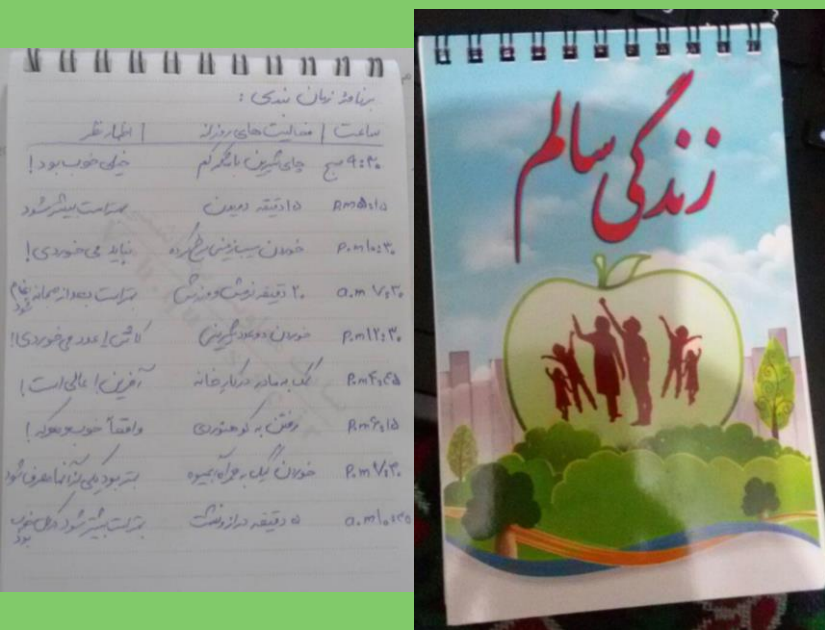 برنامهٔ زمان بندی :
ساعت | فعالیت های روزانه | اظهار نظر
۹:۳۰ صبح چای شیرین با گرم خیلی خوب بود !
P.m ۵:۱۵ ۱۵ دقیقه دویدن بهتر است بیشتر شود
P.m ۱۰:۳۰ خوردن سیب زمینی سرخ کرده نباید می خوردی !
a.m ۷:۳۰ ۲۰ دقیقه نرمش و ورزش بهتر است بعد از صبحانه انجام شود
P.m ۱۲:۳۰ خوردن دو عدد شیرینی کاش ۱ عدد می خوردی !
P.m ۴:۴۵ کمک به مادر در کار خانه آفرین ! عالی است !
P.m ۶:۱۵ رفتن به کوهنوردی واقعاً خوب بوده !
P.m ۷:۳۰ خوردن کیک به همراه آبمیوه بهتر بود یکی از آنها مصرف شود
a.m ۱۰:۴۵ ۵ دقیقه دراز و نشست بهتر است بیشتر شود ولی خوب بود
زندگی سالم